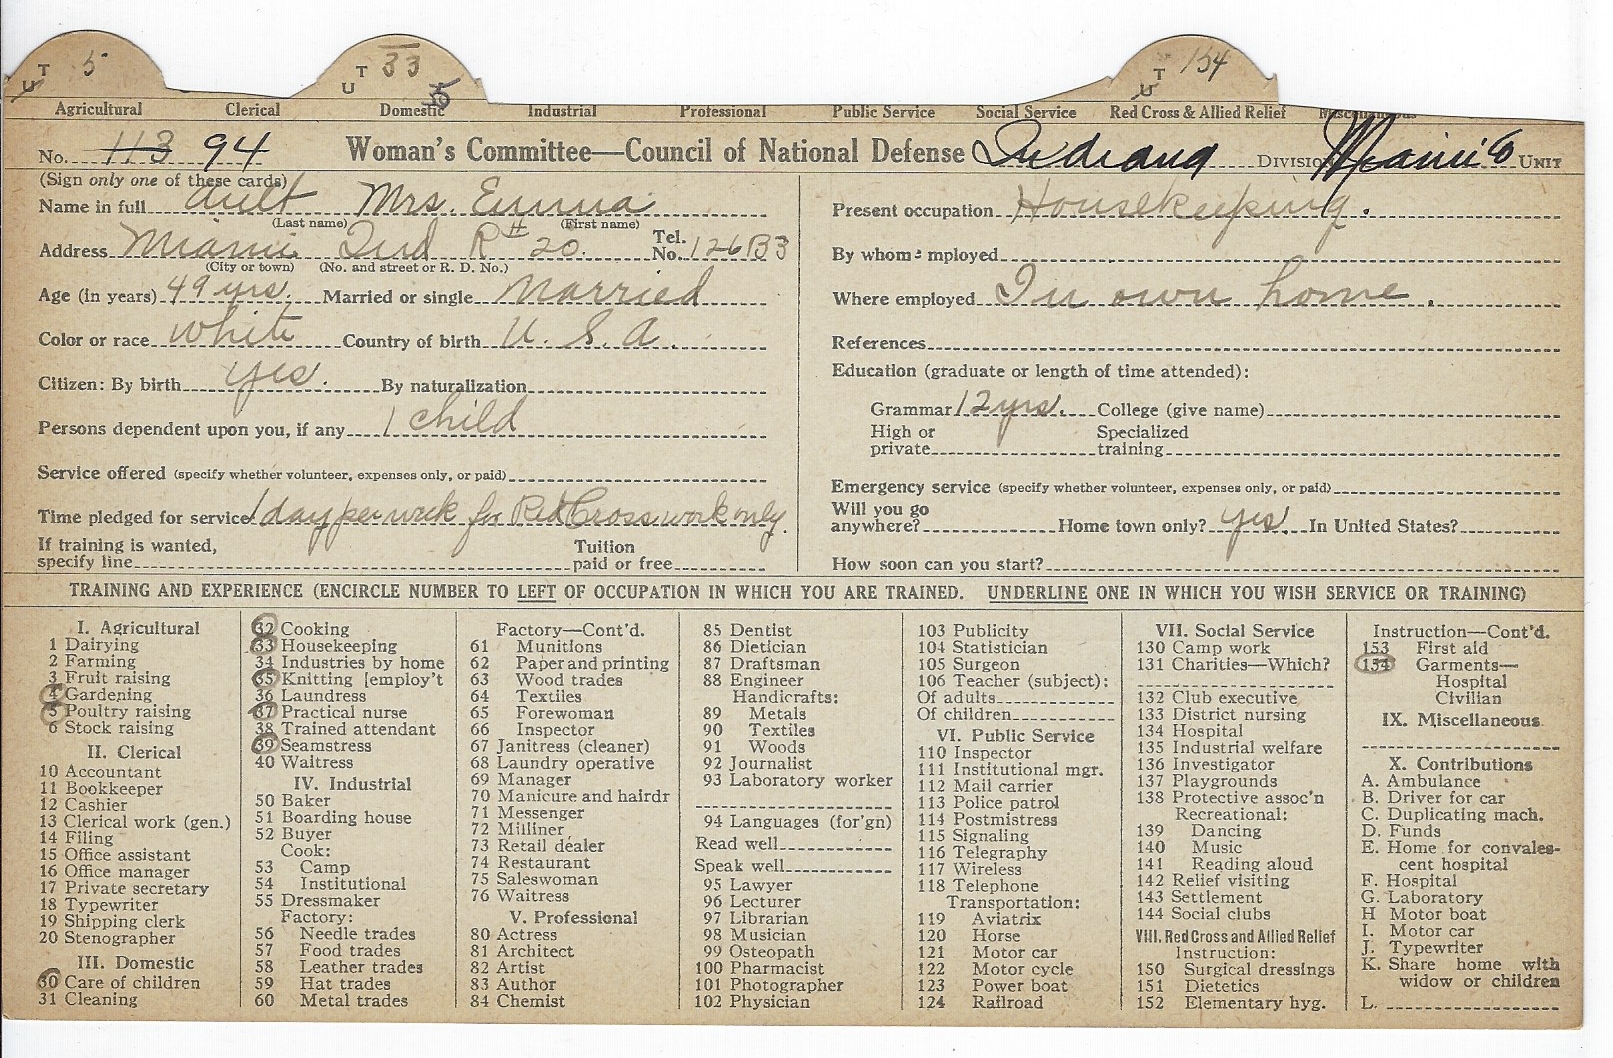 T 5 T 33 T 154
U U 39 U
Agricultural Clerical Domestic Industrial Professional Public Service Social Service Red Cross & Allied Relief Miscellaneous
No. 113 94 Woman's Committee—Council of National Defense Indiana Division Miami Unit
(Sign only one of these cards)
Name in full Ault Mrs. Emma
(Last name) (First name)
Address Miami Ind R# 20. Tel. No. 126B3
(City or town) (No. and street or R. D. No.)
Age (in years) 49 yrs. Married or single Married
Color or race White Country of birth U. S. A.
Citizen: By birth yes. By naturalization
Persons dependent upon you, if any 1 child
Service offered (specify whether volunteer, expenses only, or paid)
Time pledged for service 1 day per week for Red Cross work only.
If training is wanted, specify line Tuition paid or free
Present occupation Housekeeping.
By whom employed
Where employed In own home.
References
Education (graduate or length of time attended):
Grammar 12 yrs. College (give name)
High or private Specialized training
Emergency service (specify whether volunteer, expenses only, or paid)
Will you go anywhere? Home town only? yes. In United States?
How soon can you start?
TRAINING AND EXPERIENCE (ENCIRCLE NUMBER TO LEFT OF OCCUPATION IN WHICH YOU ARE TRAINED. UNDERLINE ONE IN WHICH YOU WISH SERVICE OR TRAINING)
I. Agricultural
1 Dairying
2 Farming
3 Fruit raising
4 Gardening
5 Poultry raising
6 Stock raising
II. Clerical
10 Accountant
11 Bookkeeper
12 Cashier
13 Clerical work (gen.)
14 Filing
15 Office assistant
16 Office manager
17 Private secretary
18 Typewriter
19 Shipping clerk
20 Stenographer
III. Domestic
30 Care of children
31 Cleaning
32 Cooking
33 Housekeeping
34 Industries by home
35 Knitting [employ't
36 Laundress
37 Practical nurse
38 Trained attendant
39 Seamstress
40 Waitress
IV. Industrial
50 Baker
51 Boarding house
52 Buyer
Cook:
53 Camp
54 Institutional
55 Dressmaker
Factory:
56 Needle trades
57 Food trades
58 Leather trades
59 Hat trades
60 Metal trades
Factory—Cont'd.
61 Munitions
62 Paper and printing
63 Wood trades
64 Textiles
65 Forewoman
66 Inspector
67 Janitress (cleaner)
68 Laundry operative
69 Manager
70 Manicure and hairdr
71 Messenger
72 Milliner
73 Retail dealer
74 Restaurant
75 Saleswoman
76 Waitress
V. Professional
80 Actress
81 Architect
82 Artist
83 Author
84 Chemist
85 Dentist
86 Dietician
87 Draftsman
88 Engineer
Handicrafts:
89 Metals
90 Textiles
91 Woods
92 Journalist
93 Laboratory worker
94 Languages (for'gn)
Read well
Speak well
95 Lawyer
96 Lecturer
97 Librarian
98 Musician
99 Osteopath
100 Pharmacist
101 Photographer
102 Physician
103 Publicity
104 Statistician
105 Surgeon
106 Teacher (subject):
Of adults
Of children
VI. Public Service
110 Inspector
111 Institutional mgr.
112 Mail carrier
113 Police patrol
114 Postmistress
115 Signaling
116 Telegraphy
117 Wireless
118 Telephone
Transportation:
119 Aviatrix
120 Horse
121 Motor car
122 Motor cycle
123 Power boat
124 Railroad
VII. Social Service
130 Camp work
131 Charities—Which?
132 Club executive
133 District nursing
134 Hospital
135 Industrial welfare
136 Investigator
137 Playgrounds
138 Protective assoc'n
Recreational:
139 Dancing
140 Music
141 Reading aloud
142 Relief visiting
143 Settlement
144 Social clubs
VIII. Red Cross and Allied Relief
Instruction:
150 Surgical dressings
151 Dietetics
152 Elementary hyg.
Instruction—Cont'd.
153 First aid
154 Garments—
Hospital
Civilian
IX. Miscellaneous
X. Contributions
A. Ambulance
B. Driver for car
C. Duplicating mach.
D. Funds
E. Home for convales-
cent hospital
F. Hospital
G. Laboratory
H Motor boat
I. Motor car
J. Typewriter
K. Share home with
widow or children
L.